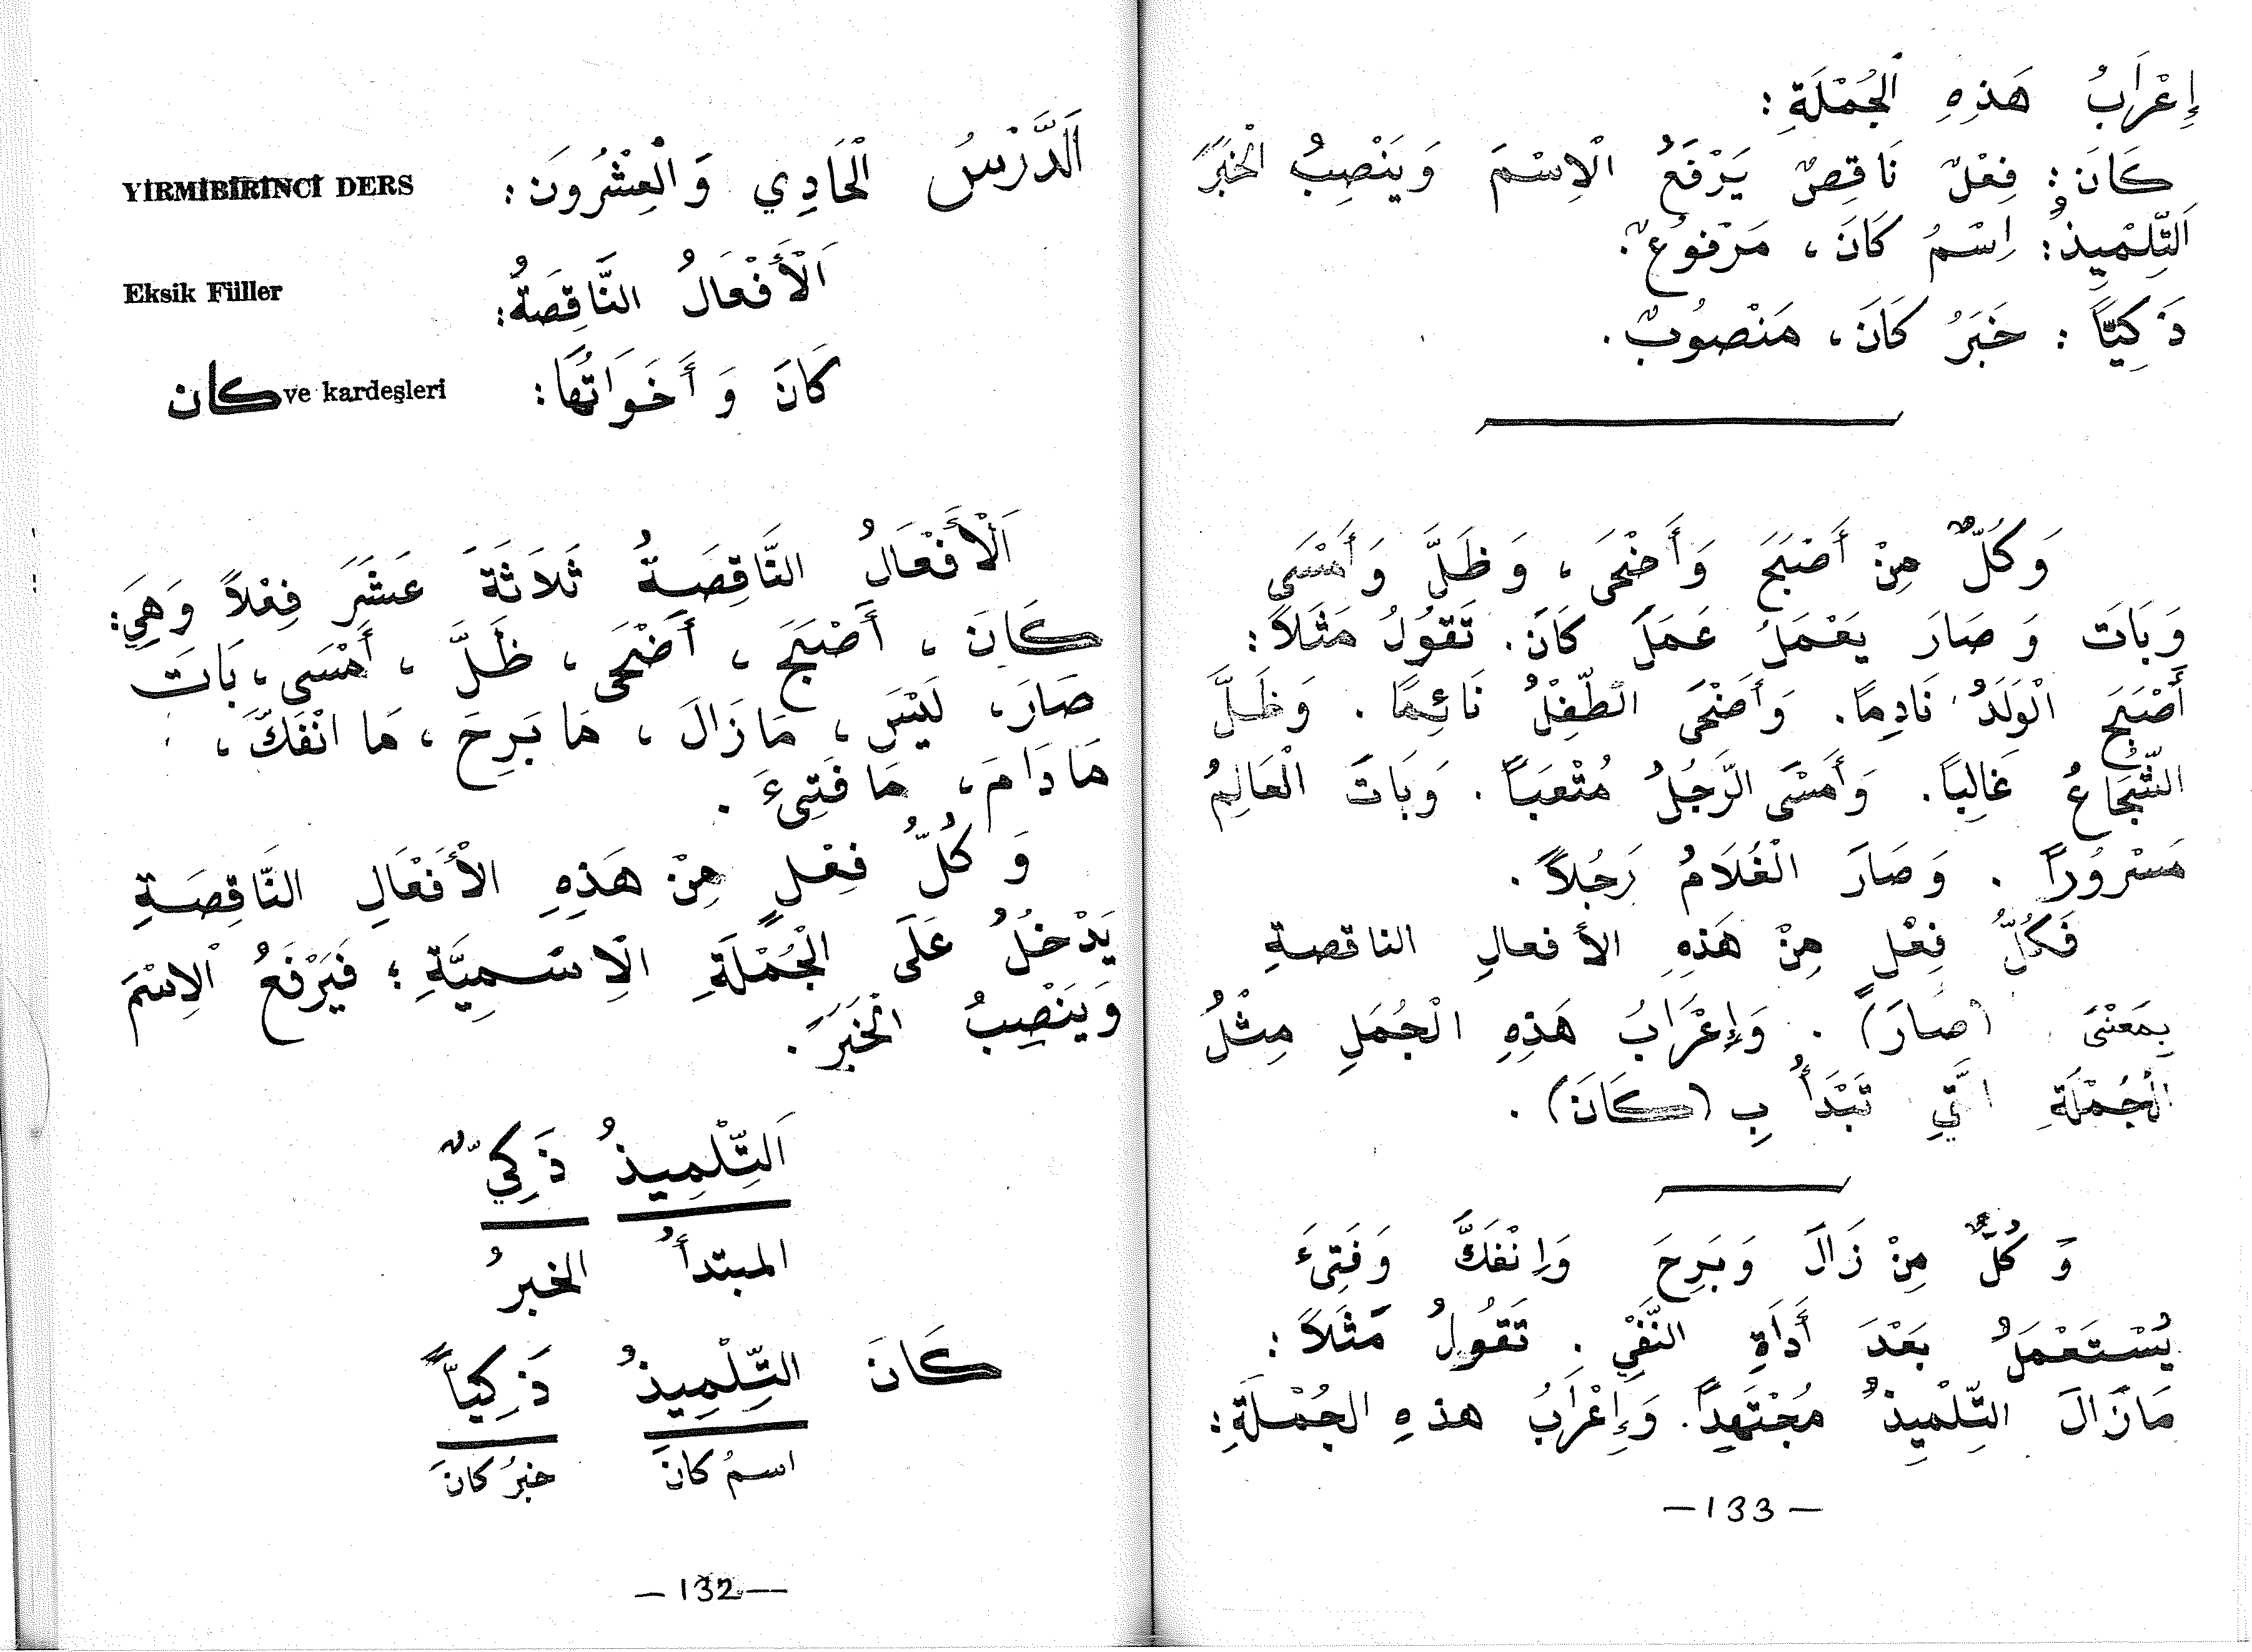 اَلدَّرْسُ الْحَادِي وَالْعِشْرُونَ: YİRMİBİRİNCİ DERS
اَلْأَفْعَالُ النَّاقِصَةُ: Eksik Fiiller
كَانَ وَ أَخَوَاتُهَا: كان ve kardeşleri
اَلْأَفْعَالُ النَّاقِصَةُ ثَلاَثَةَ عَشَرَ فِعْلاً وَهِيَ:
كَانَ ، أَصْبَحَ ، أَضْحَى ، ظَلَّ ، أَمْسَى ، بَاتَ
صَارَ، لَيْسَ ، مَا زَالَ ، مَا بَرِحَ ، مَا انْفَكَّ ،
مَا دَامَ ، مَا فَتِىءَ .
وَ كُلُّ فِعْلٍ مِنْ هَذِهِ الْأَفْعَالِ النَّاقِصَةِ
يَدْخُلُ عَلَى الْجُمْلَةِ الْاِسْمِيَّةِ ؛ فَيَرْفَعُ الْاِسْمَ
وَيَنْصِبُ الْخَبَرَ .
اَلتِّلْمِيذُ ذَكِيٌّ
المبتدأُ الخبرُ
كَانَ التِّلْمِيذُ ذَكِيّاً
اسمُ كانَ خبرُ كانَ
— 132 —
إِعْرَابُ هَذِهِ الْجُمْلَةِ :
كَانَ : فِعْلٌ نَاقِصٌ يَرْفَعُ الْاِسْمَ وَيَنْصِبُ الْخَبَرَ
اَلتِّلْمِيذُ : اِسْمُ كَانَ ، مَرْفُوعٌ .
ذَكِيّاً : خَبَرُ كَانَ ، مَنْصُوبٌ .
وَكُلٌّ مِنْ أَصْبَحَ وَأَضْحَى ، وَظَلَّ وَأَمْسَى
وَبَاتَ وَ صَارَ يَعْمَلُ عَمَلَ كَانَ . تَقُولُ مَثَلاً :
أَصْبَحَ الْوَلَدُ نَادِمًا . وَأَضْحَى الطِّفْلُ نَائِمًا . وَظَلَّ
الشُّجَاعُ غَالِبًا . وَأَمْسَى الرَّجُلُ مُتْعَبًا . وَبَاتَ الْعَالِمُ
مَسْرُورًا . وَصَارَ الْغُلَامُ رَجُلاً .
فَكُلُّ فِعْلٍ مِنْ هَذِهِ الأفعالِ الناقصةِ
بِمَعْنَى (صَارَ) . وَإِعْرَابُ هَذِهِ الْجُمَلِ مِثْلُ
الْجُمْلَةِ الَّتِي تَبْدَأُ بِ (كَانَ) .
وَ كُلٌّ مِنْ زَالَ وَبَرِحَ وَاِنْفَكَّ وَفَتِىءَ
يُسْتَعْمَلُ بَعْدَ أَدَاةِ النَّفْيِ . تَقُولُ مَثَلاً :
مَازَالَ التِّلْمِيذُ مُجْتَهِدًا . وَإِعْرَابُ هذهِ الجُمْلَةِ :
— 133 —